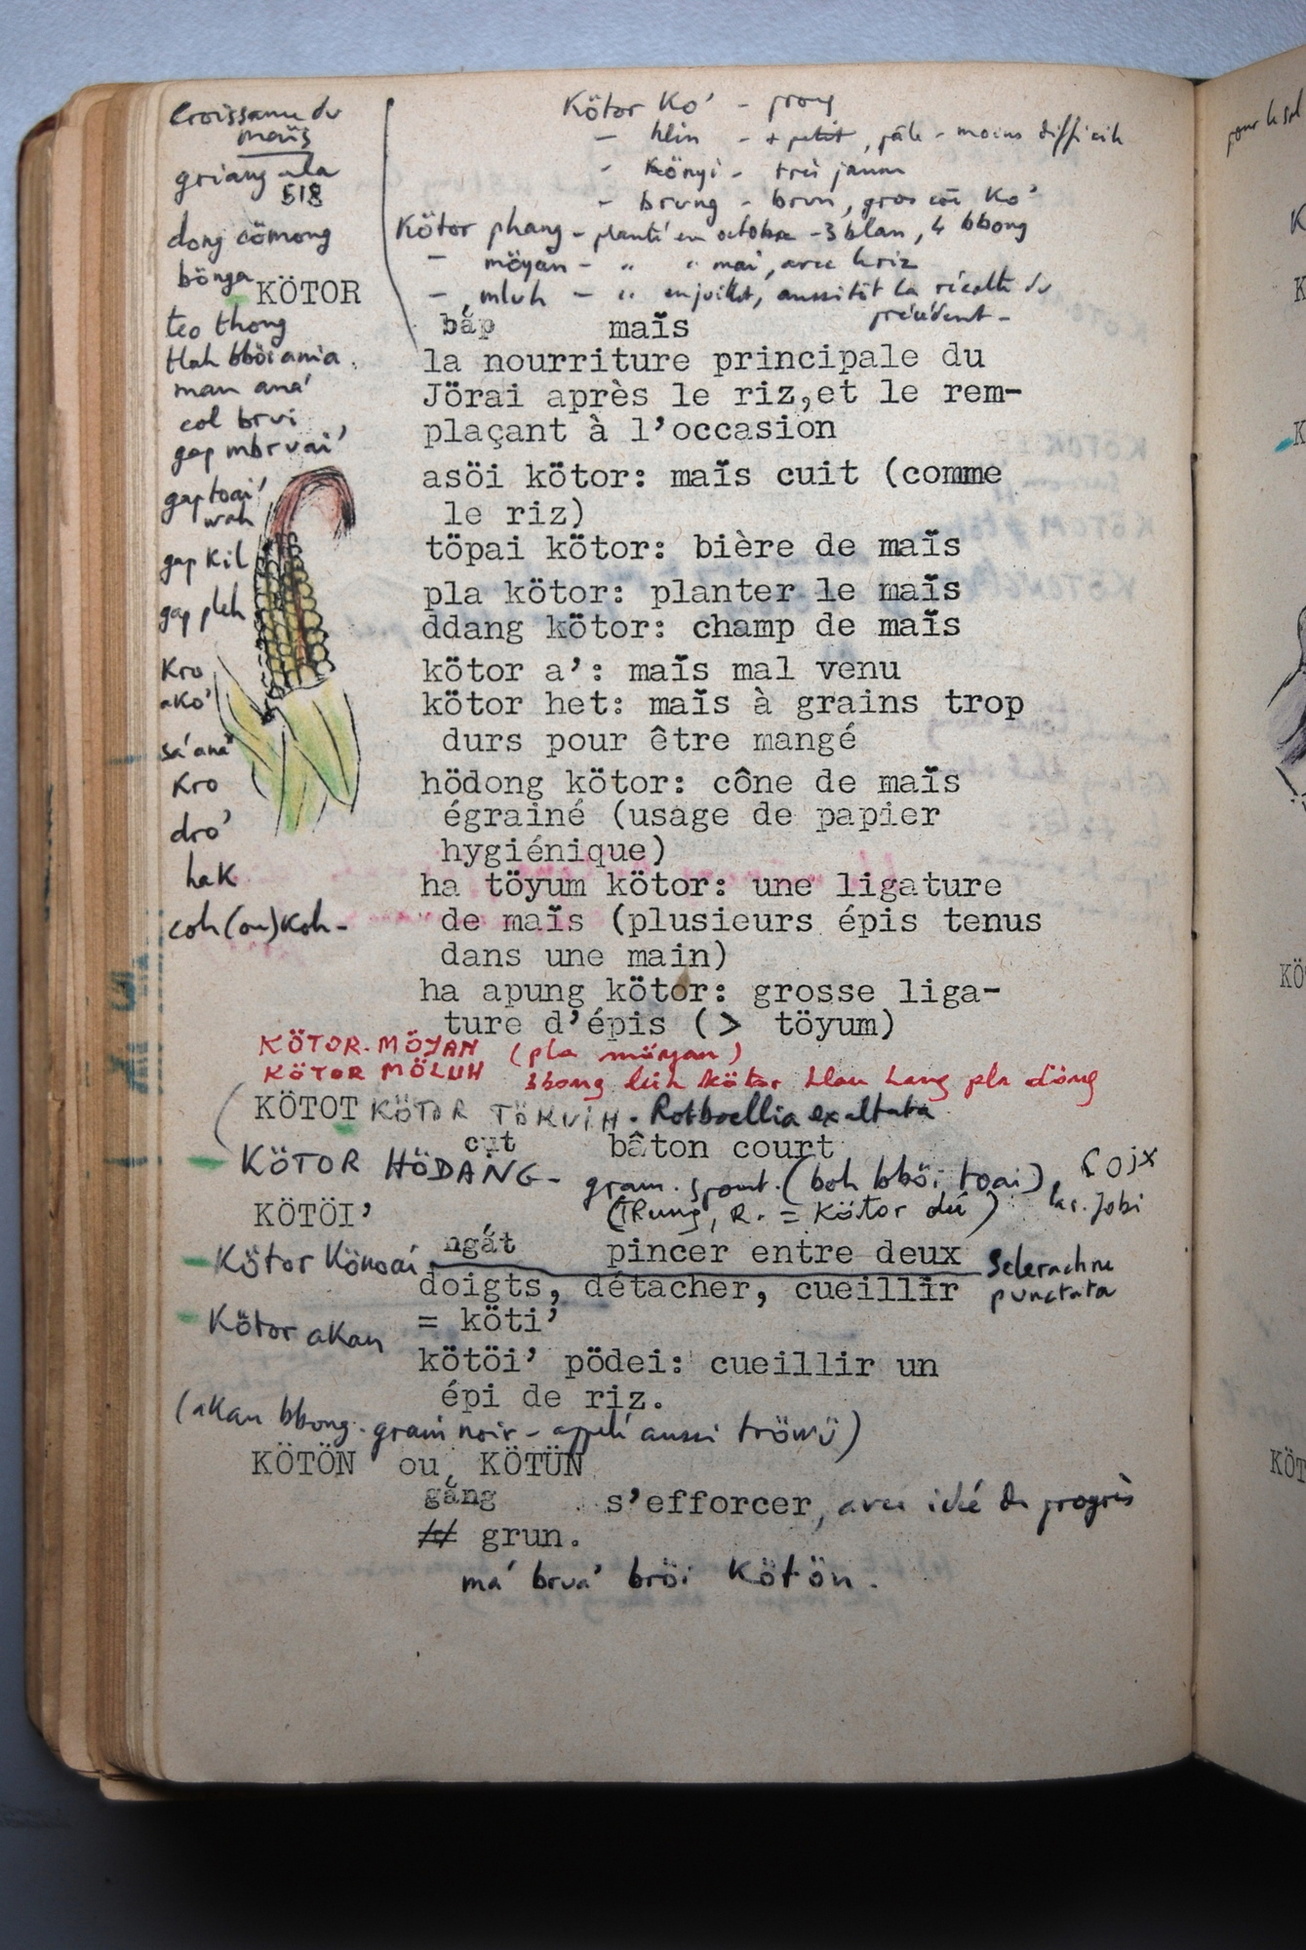 Croissance du
maïs
griang ala
518
dong cömong
bönga
teo thong
tlah bböi ama
man ana'
col brui
gap mbruai'
gap toai'
wah
gap kil
gap pleh
Kro
aKo'
sa' ana'
Kro
dro'
hak
coh (ou) Koh -
Kötor Ko' -
- hlin - + petit, pâle - moins difficile
- Könyi - très jaune
- brung - brun, gros cô Ko'
Kötor phang - planté en octobre - 3 blan, 4 bbong
- möyan - " " mai, avec le riz
- mluh - " en juillet, aussitôt la récolte du
précédent -
KÖTOR
báp maïs
la nourriture principale du
Jörai après le riz,et le rem-
plaçant à l'occasion
asöi kötor: maïs cuit (comme
le riz)
töpai kötor: bière de maïs
pla kötor: planter le maïs
ddang kötor: champ de maïs
kötor a': maïs mal venu
kötor het: maïs à grains trop
durs pour être mangé
hödong kötor: cône de maïs
égrainé (usage de papier
hygiénique)
ha töyum kötor: une ligature
de maïs (plusieurs épis tenus
dans une main)
ha apung kötor: grosse liga-
ture d'épis (> töyum)
KÖTOR MÖYAN (pla möyan)
KÖTOR MÖLUH 3bong lúh kötor blan hang pla döng
KÖTOT KÖTOR TÖKUIH - Rotboellia exaltata
cụt bâton court
KÖTOR HÖDANG - gram. spont. (boh bböi toai), Coix
lac. Jobi
KÖTÖI' (TRung, R. = Kötor dú)
ngát pincer entre deux
Kötor Könoai Sclerachne
punctata
doigts, détacher, cueillir
= köti'
Kötor akan
kötöi' pödei: cueillir un
épi de riz.
(akan bbong - grain noir - appelé aussi tröwü)
KÖTÖN ou KÖTÜN
gắng s'efforcer, avec idée de progrès
// grun.
má brua' bröi Kötön.
pour le